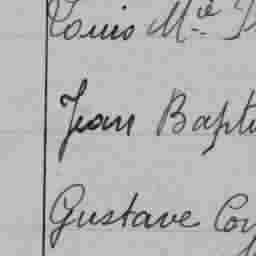 Louis Mie
Jean Bapti
Gustave